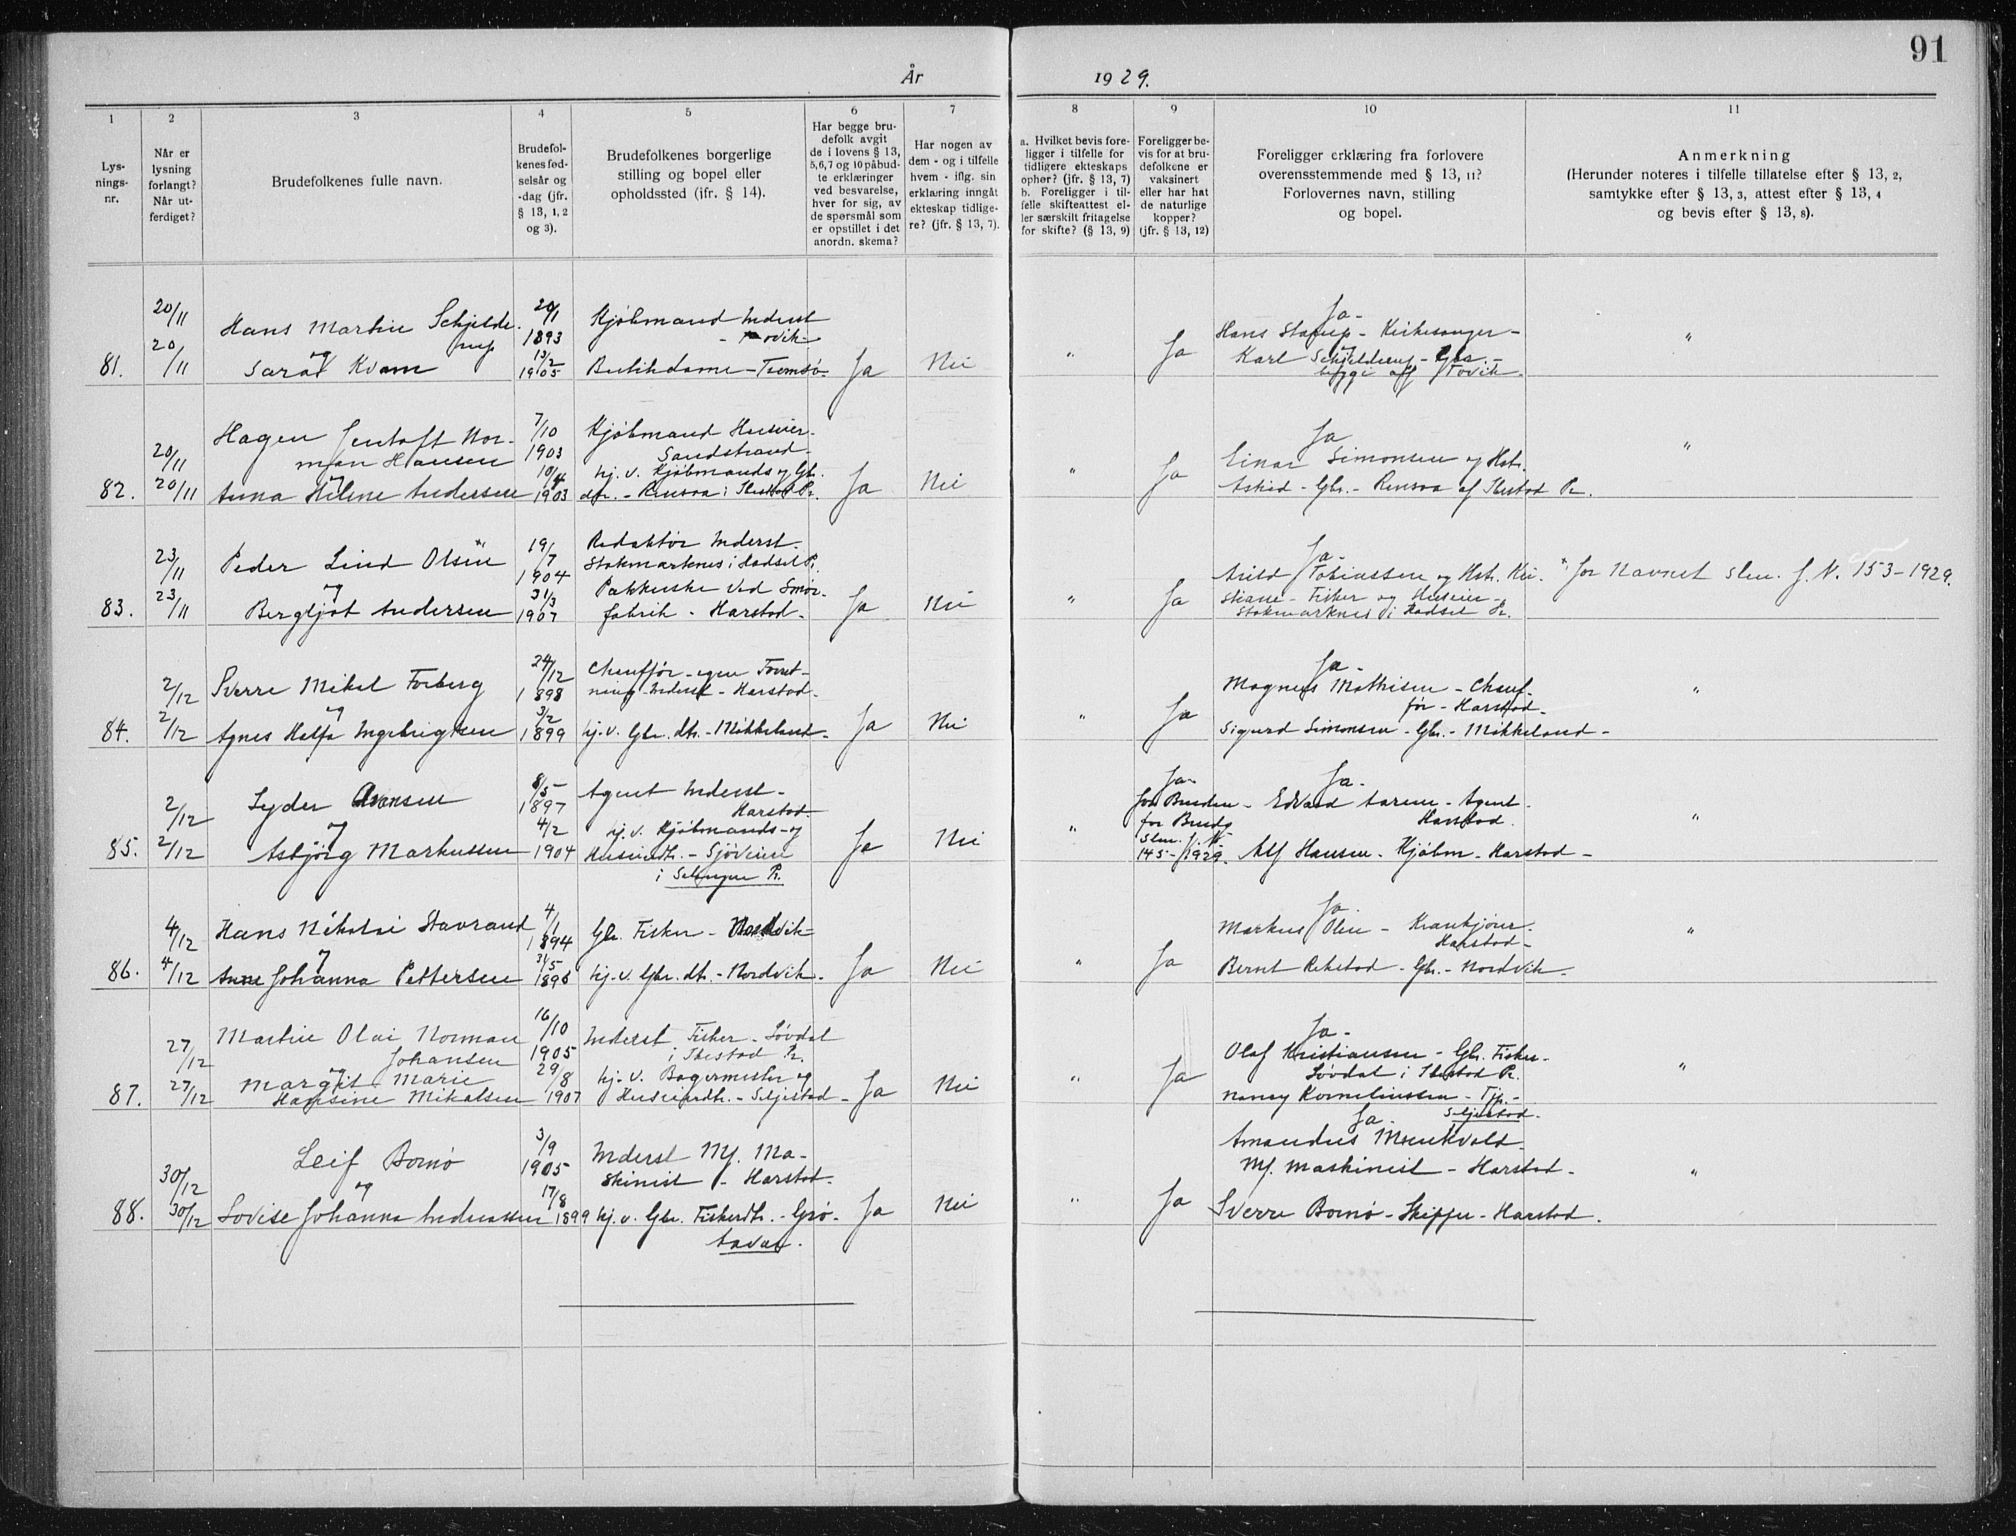 91
År 1929.
1 2 3 4 5 6 7 8 9 10 11
Lys-
nings-
nr.
Når er
lysning
forlangt?
Når ut-
ferdiget?
Brudefolkenes fulle navn.
Brudefol-
kenes fød-
selsår og
-dag (jfr.
§ 13, 1, 2
og 3).
Brudefolkenes borgerlige
stilling og bopel eller
opholdssted (jfr. § 14).
Har begge bru-
defolk avgit
de i lovens § 13,
5,6,7 og 10 påbud-
te erklæringer
ved besvarelse,
hver for sig, av
de spørsmål som
er opstillet i det
anordn. skema?
Har nogen av
dem - og i tilfelle
hvem - iflg. sin
erklæring inngått
ekteskap tidlige-
re? (jfr. § 13, 7).
a. Hvilket bevis fore-
ligger i tilfelle for
tidligere ekteskaps
ophør? (jfr. § 13, 7)
b. Foreligger i til-
felle skifteattest el-
ler særskilt fritagelse
for skifte? (§ 13, 9)
Foreligger be-
vis for at bru-
defolkene er
vaksinert
eller har hat
de naturlige
kopper?
(jfr. § 13, 12)
Foreligger erklæring fra forlovere
overensstemmende med § 13, 11?
Forlovernes navn, stilling
og bopel.
Anmerkning
(Herunder noteres i tilfelle tillatelse efter § 13, 2,
samtykke efter § 13, 3, attest efter § 13, 4
og bevis efter § 13, 8).
81.
20/11
20/11
Hans Martin Schjelde-
rup
og
Sara Kvam
20/1
1893
13/2
1905
Kjøbmand Inderst
- Tovik -
Butikdame - Tromsø -
Ja
Nei
"
Ja
Ja -
Hans Starup - Kirkesanger -
og
Karl Schjelderup - Gbr. -
begge af Tovik -
"
82.
20/11
20/11
Hagen Jentoft Nor-
man Hansen
og
Anna Helene Andersen
7/10
1903
10/4
1903
Kjøbmand Huseier -
Sandstrand -
hj. v. Kjøbmands og Gbr.
dtr. - Rensaa i Ibestad Pr.
Ja
Nei
"
Ja
Ja
Einar Simonsen og Hstr.
Astrid - Gbr. - Rensaa af Ibestad Pr.
"
83.
23/11
23/11
Peder Lind Olsen *
og
Bergljot Andersen
19/7
1904
31/3
1907
Redaktør Inderst -
Stokmarknes i Hadsel Pr.
Pakkerske ved Smør-
fabrik - Harstad -
Ja
Nei
"
Ja
Ja -
Arild Tobiassen og Hstr. Kri-
stiane - Fisker og Huseier -
Stokmarknes i Hadsel Pr.
* for Navnet slm. J. N. 153 - 1929.
84.
2/12
2/12
Sverre Mikal Forberg
og
Agnes Halfa Ingebrigtsen
24/12
1898
3/2
1899
Chauffør - egen Forret-
ning - Inderst - Harstad -
hj. v. Gbr. dtr. - Mikkeland -
Ja
Nei
"
Ja
Ja -
Magnus Mathisen - Chauf-
før - Harstad -
Sigurd Simonsen - Gbr. - Mikkeland -
"
85.
2/12
2/12
Lyder Arensen
og
Asbjørg Markussen
8/5
1897
4/2
1904
Agent Inderst -
Harstad
hj. v. Kjøbmands - og
Huseierdtr. - Sjøveien
i Salangen Pr.
Ja
Nei
"
Ja -
for Bruden -
for Brudg
Slm. J. N.
145 - 1929.
Ja -
Edvard Aarena - Agent -
Harstad.
Alf Hansen - Kjøbm - Harstad -
"
86.
4/12
4/12
Hans Nikolai Stavrand
og
Anne Johanna Pettersen
4/1
1894
31/5
1896
Gbr. Fisker - Nordvik -
hj. v. Gbr. dtr. - Nordvik -
Ja
Nei
"
Ja
Ja
Markus Olsen - Krankjører
Harstad -
Bernt Rekstad - Gbr. - Nordvik -
"
87.
27/12
27/12
Martin Olai Norman
Johansen
og
Margit Marie
Hansine Mikalsen
16/10
1905
29/8
1907
Inderst Fisker - Løvdal
i Ibestad Pr.
hj. v. Bagermester og
Huseierdtr. - Seljestad -
Ja
Nei
"
Ja
Ja -
Olaf Kristiansen - Gbr. Fisker -
Løvdal i Ibestad Pr.
Nancy Korneliussen - Tjp. -
Seljestad -
"
88.
30/12
30/12
Leif Bornø
og
Lovise Johanna Andreassen
3/9
1905
17/8
1899
Inderst Mf. Ma-
skinist - Harstad -
hj. v. Gbr. Fiskerdtr. - Grø-
tavær.
Ja
Nei
"
Ja
Ja
Amandus Munkvold
Mf. Maskinist - Harstad -
Sverre Bornø - Skipper - Harstad.
"